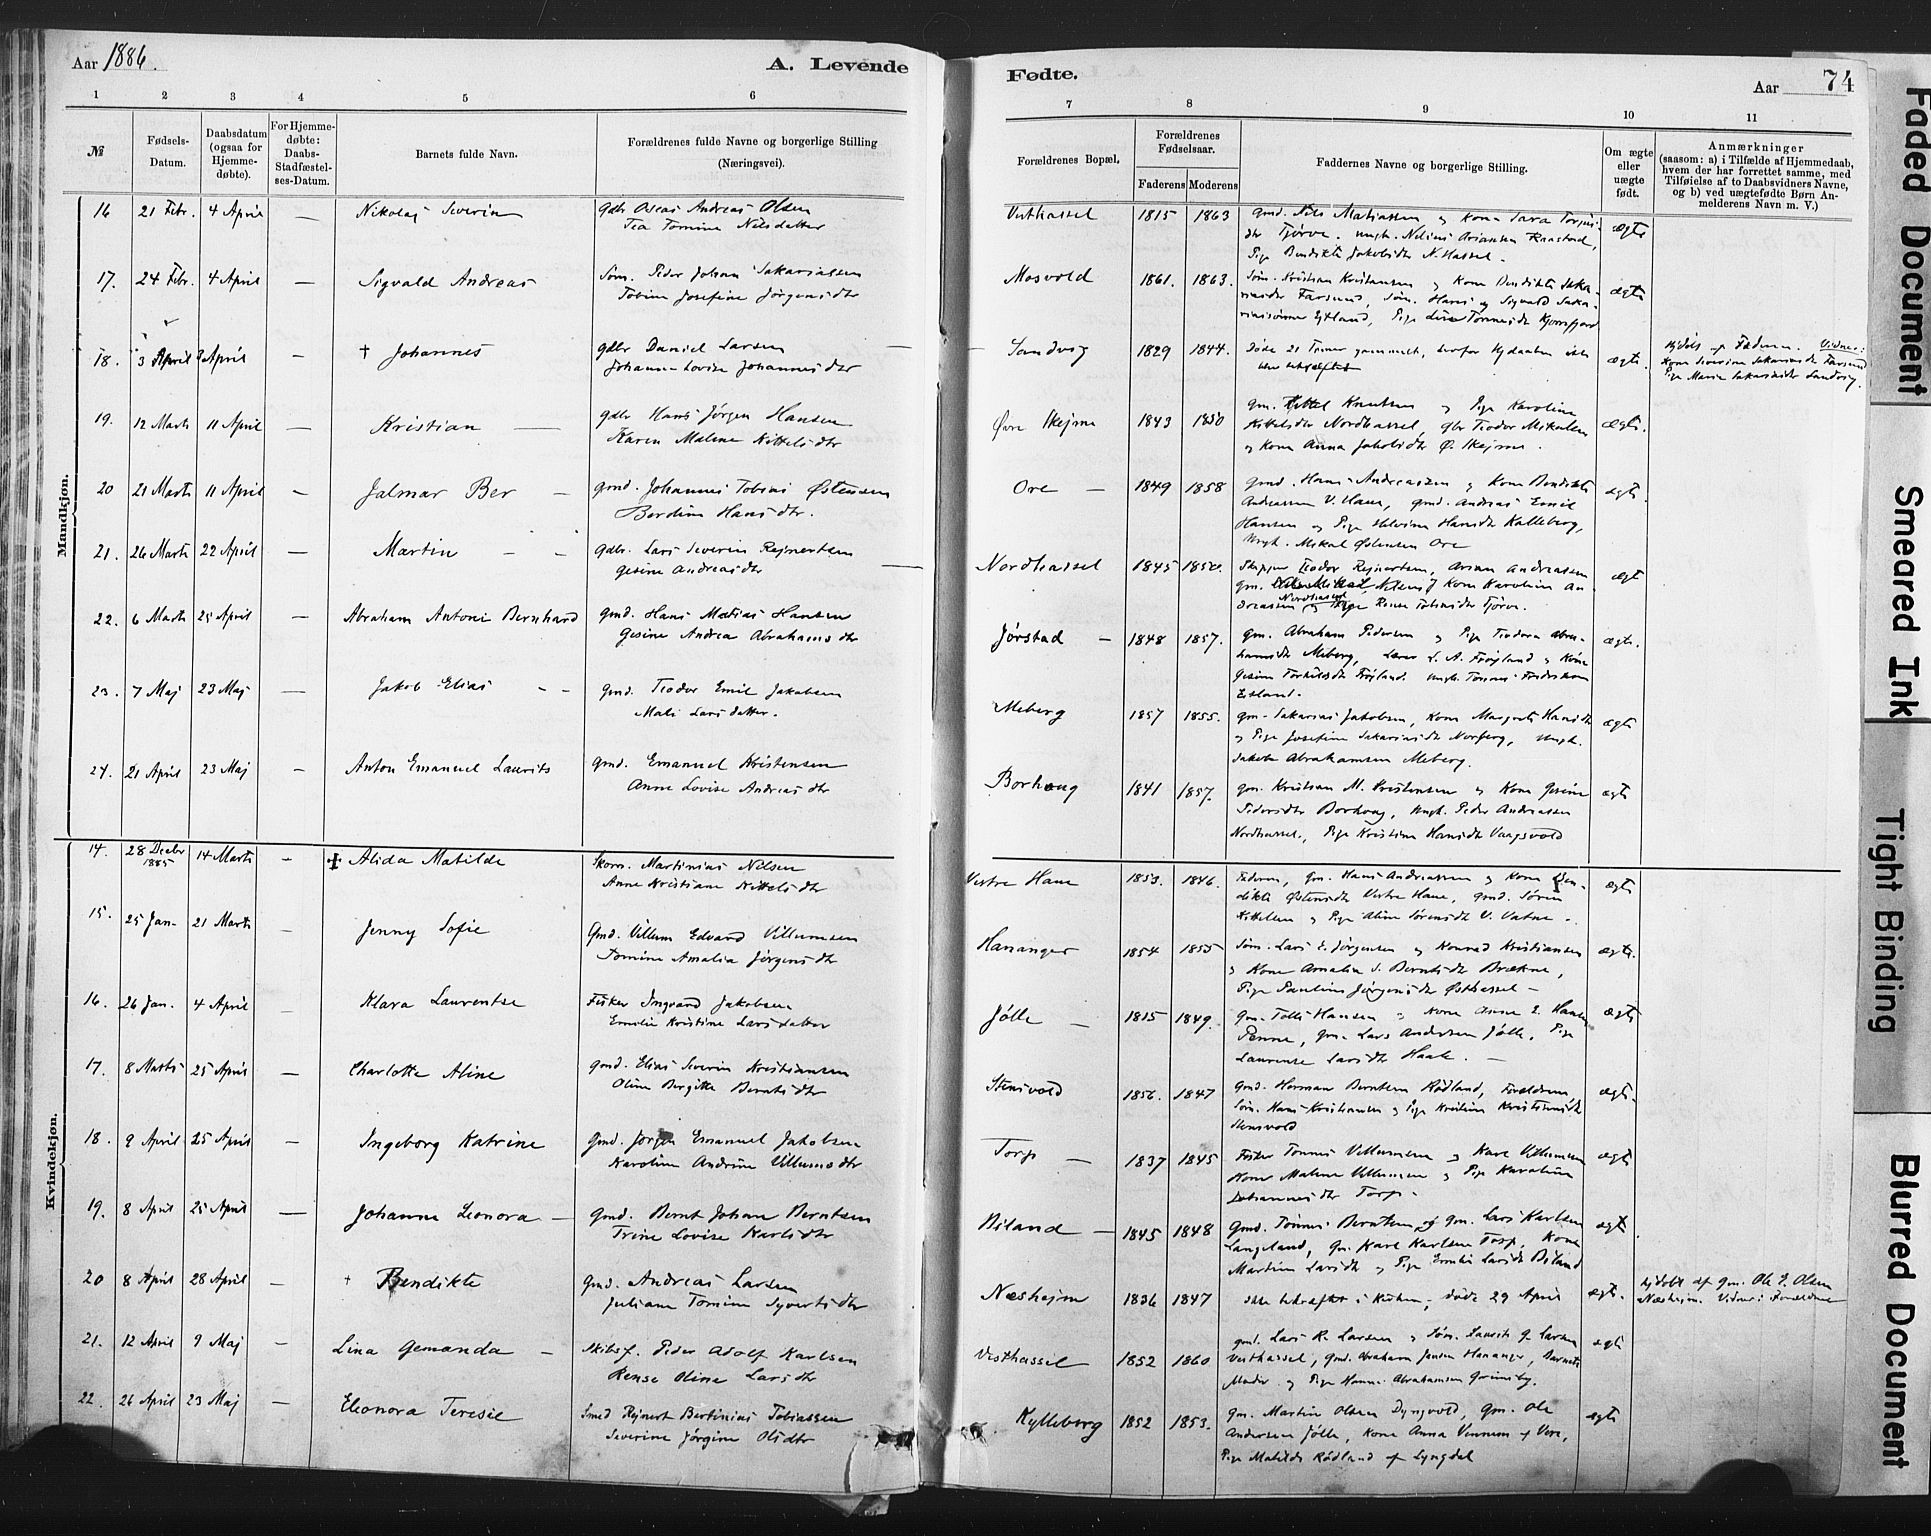 Aar 1886.
A. Levende
1 2 3 4 5 6
№
Fødsels-Datum.
Daabsdatum (ogsaa for Hjemme-døbte).
For Hjemme-døbte: Daabs-Stadfæstel-ses-Datum.
Barnets fulde Navn.
Forældrenes fulde Navne og borgerlige Stilling (Næringsvei).
Mandkjøn.
16 21 Febr. 4 April — Nikolaj Severin
Andreas Olsen
Tea Tomine Nilsdatter
17. 24 Febr. 4 April — Sigvald Andreas
Søm. Peder Johan Sakariassen
Tobine Josefine Jørgensdtr
18. 3 April April — † Johannes
gdbr Daniel Larsen
Johanne Lovise Johannesdtr
19. 12 Marts 11 April — Kristian —
gdbr Hans Jørgen Hansen
Karen Malene Kittelsdtr
20 21 Marts 11 April — Jalmar Ber —
gmd. Johannes Tobias Østensen
Berdine Hansdtr.
21. 26 Marts 22 April — Martin — —
gdbr. Lars Severin Rejnertsen
Gesine Andreasdtr
22. 6 Marts 25 April — Abraham Antoni Bernhard
gmd. Hans Matias Hansen
Gesine Andrea Abrahamsdtr
23. 7 Maj 23 Maj — Jakob Elias - -
gmd. Teodor Emil Jakobsen
Mali Larsdatter.
24. 21 April 23 Maj — Anton Emanuel Laurits
gmd. Emanuel Kristensen
Anne Lovise Andreasdtr
Kvindekjøn.
14. 28 Decbr 1885 14 Marts — ‡ Alida Matilde
Martinius Nilsen
Anne Kristiane Kittelsdtr
15. 25 Jan. 21 Marts — Jenny Sofie
Gmd. Villum Edvard Villumsen
Tomine Amalia Jørgensdtr
16. 26 Jan. 4 April — Klara Laurentse
Fisker Ingvard Jakobsen
Emilie Kristine Larsdatter
17. 8 Marts 25 April — Charlotte Aline
gmd. Elias Severin Kristiansen
Oline Bergitte Berntsdtr
18. 9 April 25 April — Ingeborg Katrine
gmd. Jørgen Emanuel Jakobsen
Karoline Andrine Villumsdtr
19. 8 April 25 April — Johanne Leonora —
gmd. Bernt Johan Berntsen
Trine Lovise Karlsdtr
20 8 April 28 April — † Bendikte
gmd. Andreas Larsen
Juliane Tomine Syvertsdtr
21. 12 April 9 Maj — Lina Gemanda —
Skibsf. Peder Adolf Karlsen
Rense Oline Larsdtr
22. 26 April 23 Maj — Eleonora Teresie
Smed Rejnert Bertinius Tobiassen
Severine Jørgine Olsdtr
Fødte.
Aar 74
7 8 9 10 11
Forældrenes Bopæl.
Forældrenes Fødselsaar.
Faderens Moderens
Faddernes Navne og borgerlige Stilling.
Om ægte eller uægte født.
Anmærkninger
(saasom: a) i Tilfælde af Hjemmedaab,
hvem der har forrettet samme, med
Tilføielse af to Daabsvidners Navne,
og b) ved uægtefødte Børn An-
melderens Navn m. V.)
Vesthassel 1815 1863
gmd. Nils Matiassen og Kone Sara
dtr Tjørve. ungk. Nelius
Pige Bendikte Jakobsdtr N. Hassel.
ægte
Mosvold 1861. 1863.
Søm. Kristian Kristensen og Kone Bendikte Saka-
riasdtr Farsund, Søm. Hans og Sigvald Saka-
riassønner
ægte
— Sandvig 1829 1844.
Døde 21 Timer gammelt, derfor Hjdaaben ikke
ægte.
af Faderen. Vidner:
Kone Severine Sakariasdtr Farsund
Pige Maria Sakariasdtr Sandvig.
Øvre Skejme 1843 1850
gm. Kittel Knutsen og Pige Karoline
Kittelsdtr Nordhassel, gbr Teodor Mikalsen
og Kone Anna Jakobsdtr Ø. Skejme.
ægte.
Ore — 1849 1858
gmd. Hans Andreassen og Kone Bendikte
V. Haue, gmd. Andreas Emil
Hansen og Pige Hansdtr Kalleberg,
Ungk. Mikal Østensen Ore
ægte.
Nordhassel 1845 1850.
Skipper Teodor Rejnertsen, Andreassen
gm. Kone Karoline An-
dreassen Nordhassel og Pige Rense Tobiasdtr Tjørve.
ægte
Jørstad — 1848 1857.
gm. Abraham Pedersen og Pige Teodora Abra-
hamsdtr Meberg, Lærer L. A. Frøjland og Kone
Gesine Frøjland. ungk. Tønnes Fredriksen
ægte.
Meberg 1857 1855.
gm. Sakarias Jakobsen, Kone Margrete Hansdtr
og Pige Josefine Sakariasdtr Norberg, Ungk.
Jakob Abrahamsen Meberg.
ægte
Borhaug 1841 1857.
gm. Kristian M. Kristensen og Kone Gesine
Pedersdtr Borhaug, Ungk. Peder Andreassen
Nordhassel, Pige Kristine Hansdtr Vaagsvold
ægte
Vestre Haue 1853. 1846.
Faderen, gm. Hans Andreassen og Kone Ben-
dikte Østensdtr Vestre Haue, gmd. Søren
Kittelsen og Pige Aline Sørensdtr V. Vatne.
ægte
Hananger 1854 1855
Søm. Lars E. Jørgensen og Konrad Kristiansen
og Kone Amalia S. Berntsdtr Brekne,
Pige Pauline Jørgensdtr Østhassel —
ægte.
Jølle — 1815 1849.
gm. Tollis Hansen og Kone Anne E. Hansen
Penne, gm. Lars Andersen Jølle, Pige
Laurense Larsdtr Haale. —
ægte
Stensvold 1856. 1847
gmd. Herman Berntsen Rødland, Forældrene,
Søm. Hans Kristiansen og Pige Kristine Kristiansdtr
Stensvold
ægte.
Torp — 1837 1845
Fisker Tønnes Villumsen og Karl Villumsen
Kone Malene Villumsen og Pige Karoline
Johannesdtr Torp.
ægte
Biland — 1845 1848
gmd. Tønnes Berntsen, gm. Lars Karlsen
Langeland, gm. Karl Karlsen Torp, Kone
Martine Larsdtr og Pige Emilie Larsdtr Biland
ægte
Næshejm 1836 1847
Ikke bekræftet i Kirken, døde 29 April
ægte.
Hjdøbt af gm. Ole E. Olsen
Næshejm. Vidner: Forældrene
Vesthassel 1852 1860
gmd. Lars R. Larsen og Søm. Laurits G. Larsen
Vesthassel, gmd. Abraham Jensen Hananger, Barnets
Moder og Pige Hanne Abrahamsen Grimsby.
ægte
Kylleberg 1852 1853.
gm. Martin Olsen Dyngvold, gm. Ole
Andersen Jølle, Kone Anna Vennem af Vere,
Pige Matilde Rødland af Lyngdal
ægte
Faded Document
Smeared Ink
Tight Binding
Blurred Document